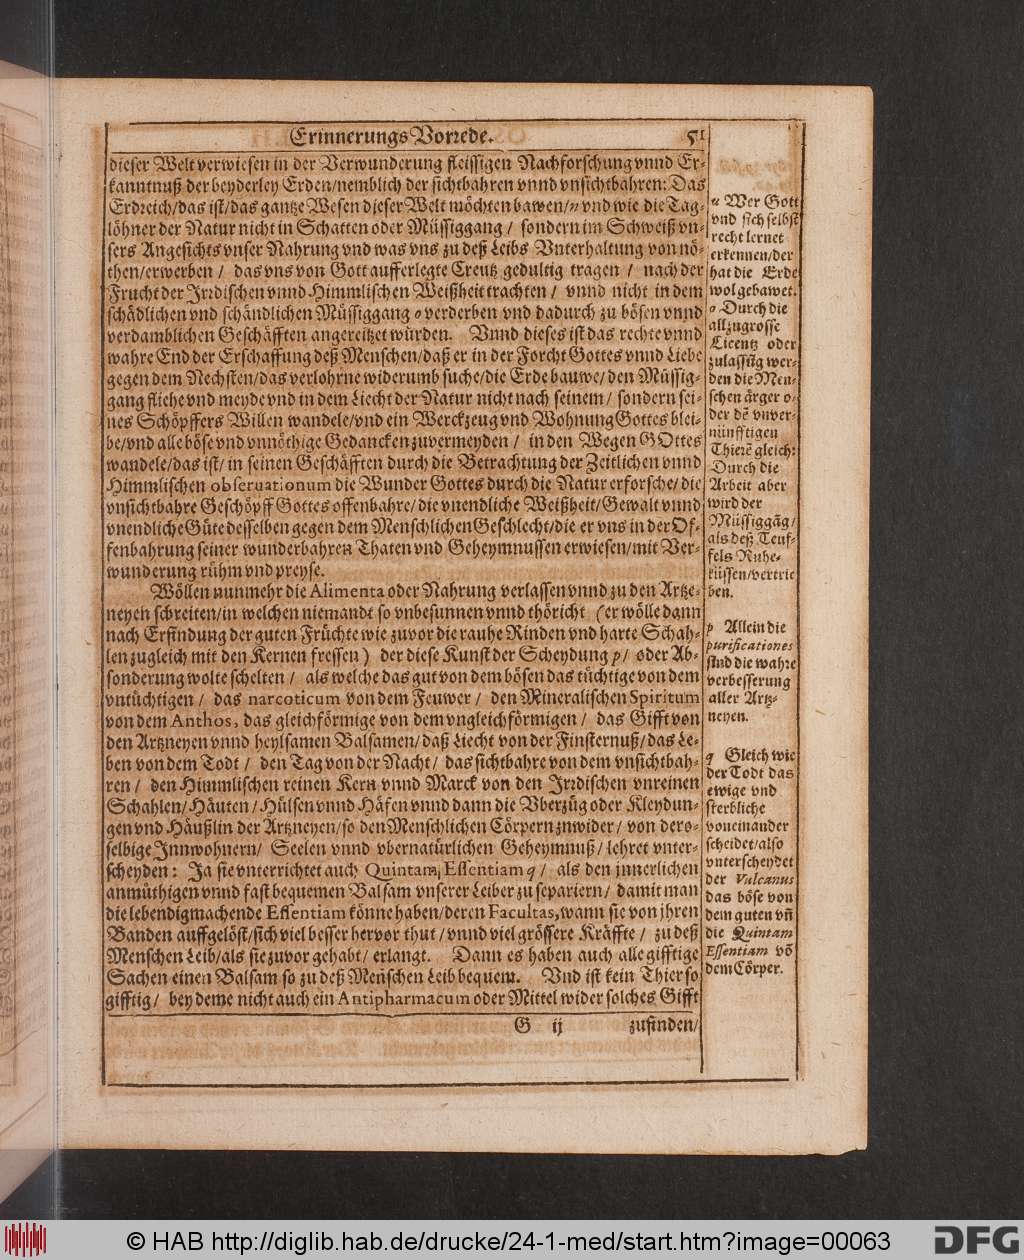 Erinnerungs Vorrede. 51
dieser Welt verwiesen in der Verwunderung fleissigen Nachforschung vnnd Er-
kanntnuß der beyderley Erden/nemblich der sichtbahren vnnd vnsichtbahren: Das
Erdreich/das ist/das gantze Wesen dieser Welt möchten bawen/n vnd wie die Tag-
löhner der Natur nicht in Schatten oder Müssiggang / sondern im Schweiß vn-
sers Angesichts vnser Nahrung vnd was vns zu deß Leibs Vnterhaltung von nö-
then/erwerben / das vns von Gott aufferlegte Creutz gedultig tragen / nach der
Frucht der Irrdischen vnnd Himmlischen Weißheit trachten / vnnd nicht in dem
schädlichen vnd schändlichen Müssiggang o verderben vnd dadurch zu bösen vnnd
verdamblichen Geschäfften angereitzet würden. Vnnd dieses ist das rechte vnnd
wahre End der Erschaffung deß Menschen/daß er in der Forcht Gottes vnnd Liebe
gegen dem Nechsten/das verlohrne widerumb suche/die Erde bauwe/den Müssig-
gang fliehe vnd meyde vnd in dem Liecht der Natur nicht nach seinem/ sondern sei-
nes Schöpffers Willen wandele/vnd ein Werckzeug vnd Wohnung Gottes blei-
be/vnd alle böse vnd vnnöthige Gedancken zuvermeyden / in den Wegen GOttes
wandele/das ist/ in seinen Geschäfften durch die Betrachtung der Zeitlichen vnnd
Himmlischen obseruationum die Wunder Gottes durch die Natur erforsche/die
vnsichtbahre Geschöpff Gottes offenbahre/die vnendliche Weißheit/Gewalt vnnd
vnendliche Güte desselben gegen dem Menschlichen Geschlecht/die er vns in der Of-
fenbahrung seiner wunderbahren Thaten vnd Geheymnussen erwiesen/mit Ver-
wunderung rühm vnd preyse.
Wöllen nunmehr die Alimenta oder Nahrung verlassen vnnd zu den Artze-
neyen schreiten/in welchen niemandt so vnbesunnen vnnd thöricht (er wölle dann
nach Erfindung der guten Früchte wie zuvor die rauhe Rinden vnd harte Schah-
len zugleich mit den Kernen fressen) der diese Kunst der Scheydung p/ oder Ab-
sonderung wolte schelten / als welche das gut von dem bösen das tüchtige von dem
vntüchtigen / das narcoticum von dem Feuwer / den Mineralischen Spiritum
von dem Anthos, das gleichförmige von dem vngleichförmigen / das Gifft von
den Artzneyen vnnd heylsamen Balsamen/daß Liecht von der Finsternuß/das Le-
ben von dem Todt / den Tag von der Nacht / das sichtbahre von dem vnsichtbah-
ren / den Himmlischen reinen Kern vnnd Marck von den Irrdischen vnreinen
Schahlen/Häuten/Hülsen vnnd Häfen vnnd dann die Vberzüg oder Kleydun-
gen vnd Häußlin der Artzneyen/so den Menschlichen Cörpern znwider/ von dero-
selbige Innwohnern/ Seelen vnnd vbernatürlichen Geheymnuß/lehret vnter-
scheyden: Ja sie vnterrichtet auch Quintam Essentiam q/ als den jnnerlichen
anmüthigen vnnd fast bequemen Balsam vnserer Leiber zu separiern/ damit man
die lebendigmachende Essentiam könne haben/deren Facultas, wann sie von jhren
Banden auffgelöst/sich viel besser hervor thut/vnnd viel grössere Kräffte/ zu deß
Menschen Leib/als sie zuvor gehabt/erlangt. Dann es haben auch alle gifftige
Sachen einen Balsam so zu deß Menschen Leib bequem. Vnd ist kein Thier so
gifftig/ bey deme nicht auch ein Antipharmacum oder Mittel wider solches Gifft
G ij zufinden/
n Wer Gott
vnd sich selbst
recht lernet
erkennen/der
hat die Erde
wol gebawet.
o Durch die
allzugrosse
Licentz oder
zulassũg wer-
den die Men-
schen ärger o-
der dẽ vnver-
nünfftigen
Thierẽ gleich:
Durch die
Arbeit aber
wird der
Müssiggãg/
als deß Teuf-
fels Ruhe-
küssen/vertrie
ben.
p Allein die
purificationes
sind die wahre
verbesserung
aller Artz-
neyen.
q Gleich wie
der Todt das
ewige vnd
sterbliche
voneinander
scheidet/also
vnterscheydet
der Vulcanus
das böse von
dem guten vñ
die Quintam
Essentiam võ
dem Cörper.
© HAB http://diglib.hab.de/drucke/24-1-med/start.htm?image=00063
DFG